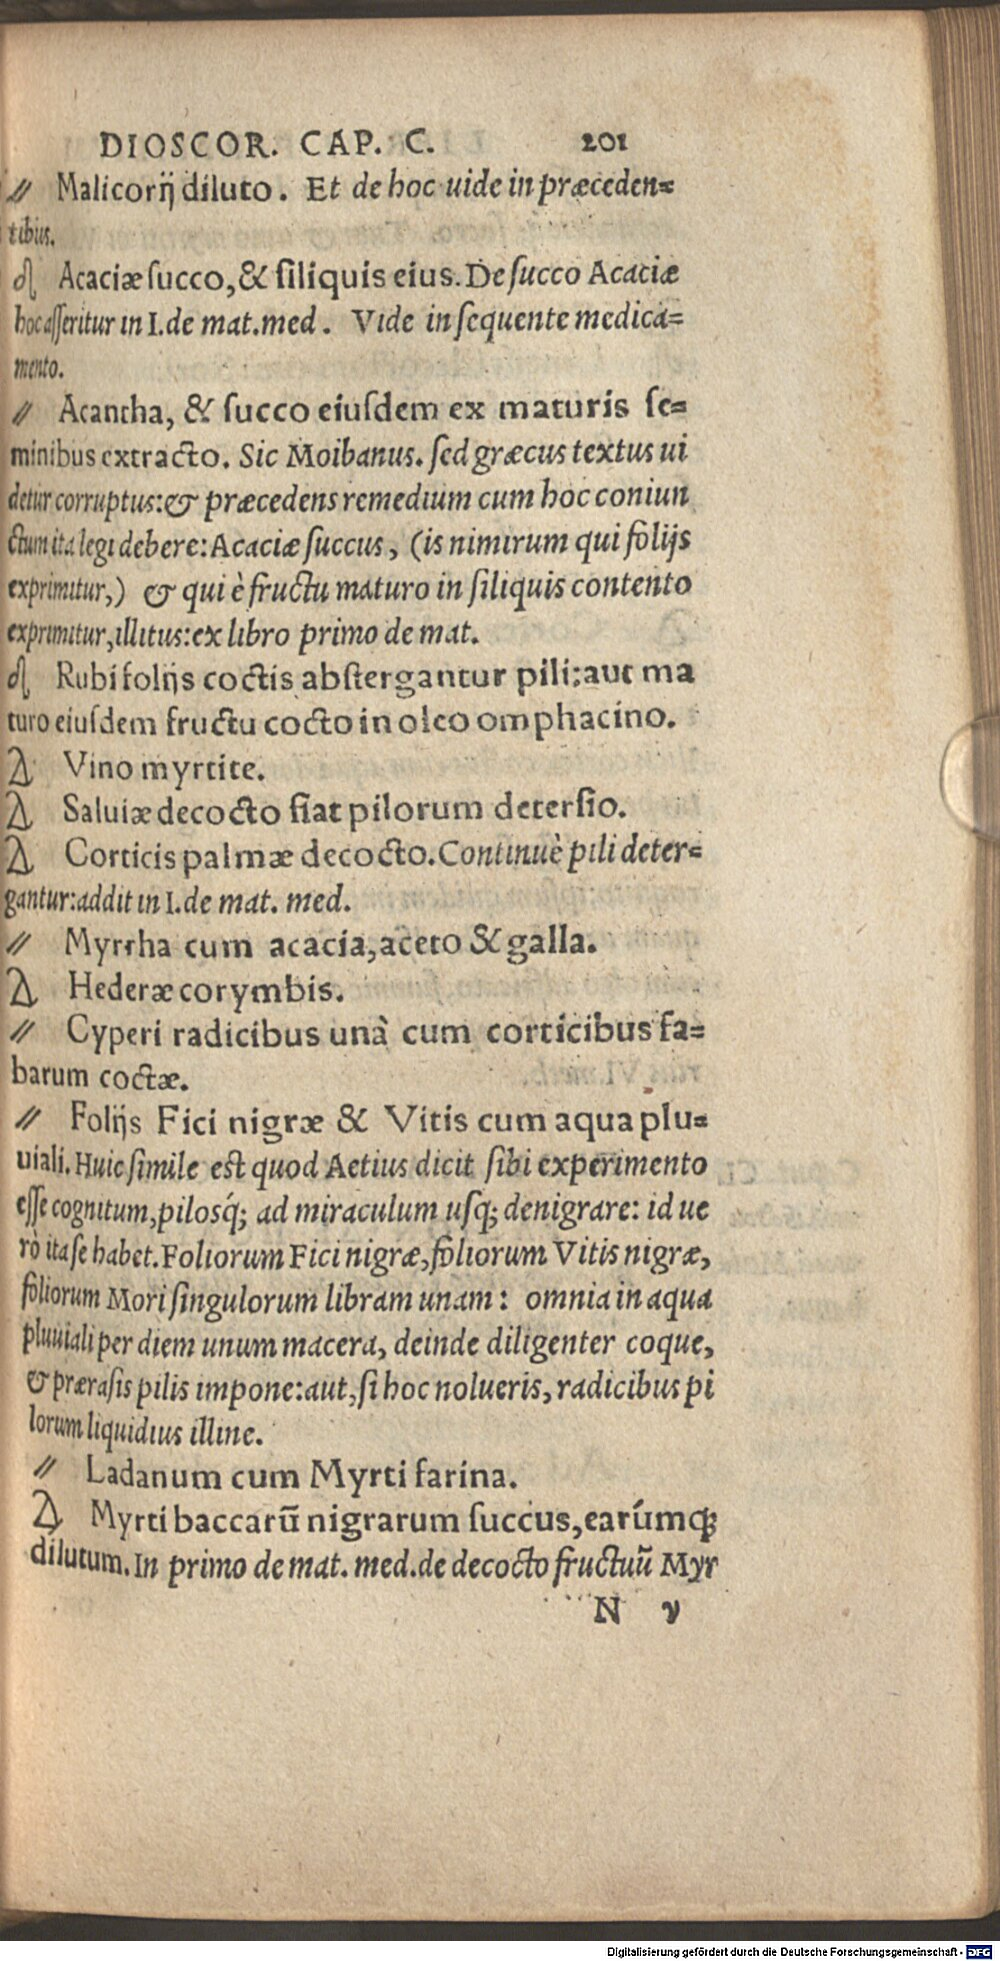 DIOSCOR. CAP. C. 201
// Malicorij diluto. Et de hoc uide in præceden=
tibus.
Acaciæ succo, & siliquis eius. De succo Acaciæ
hoc asseritur in I. de mat. med. Vide in sequente medica=
mento.
// Acantha, & succo eiusdem ex maturis se=
minibus extracto. Sic Moibanus. sed græcus textus ui
detur corruptus: & præcedens remedium cum hoc coniun
ctum ita legi debere: Acaciæ succus, (is nimirum qui folijs
exprimitur,) & qui è fructu maturo in siliquis contento
exprimitur, illitus: ex libro primo de mat.
Rubi folijs coctis abstergantur pili: aut ma
turo eiusdem fructu cocto in oleo omphacino.
Δ Vino myrtite.
Δ Saluiæ decocto fiat pilorum detersio.
Δ Corticis palmæ decocto. Continuè pili deter=
gantur: addit in I. de mat. med.
// Myrrha cum acacia, aceto & galla.
Δ Hederæ corymbis.
// Cyperi radicibus unà cum corticibus fa=
barum coctæ.
// Folijs Fici nigræ & Vitis cum aqua plu=
uiali. Huic simile est quod Aetius dicit sibi experimento
esse cognitum, pilosq́; ad miraculum usq; denigrare: id ue
rò ita se habet. Foliorum Fici nigræ, foliorum Vitis nigræ,
foliorum Mori singulorum libram unam: omnia in aqua
pluuiali per diem unum macera, deinde diligenter coque,
& prærasis pilis impone: aut, si hoc nolueris, radicibus pi
lorum liquidius illine.
// Ladanum cum Myrti farina.
Δ Myrti baccarũ nigrarum succus, earúmq;
dilutum. In primo de mat. med. de decocto fructuũ Myr
N v
Digitalisierung gefördert durch die Deutsche Forschungsgemeinschaft - DFG